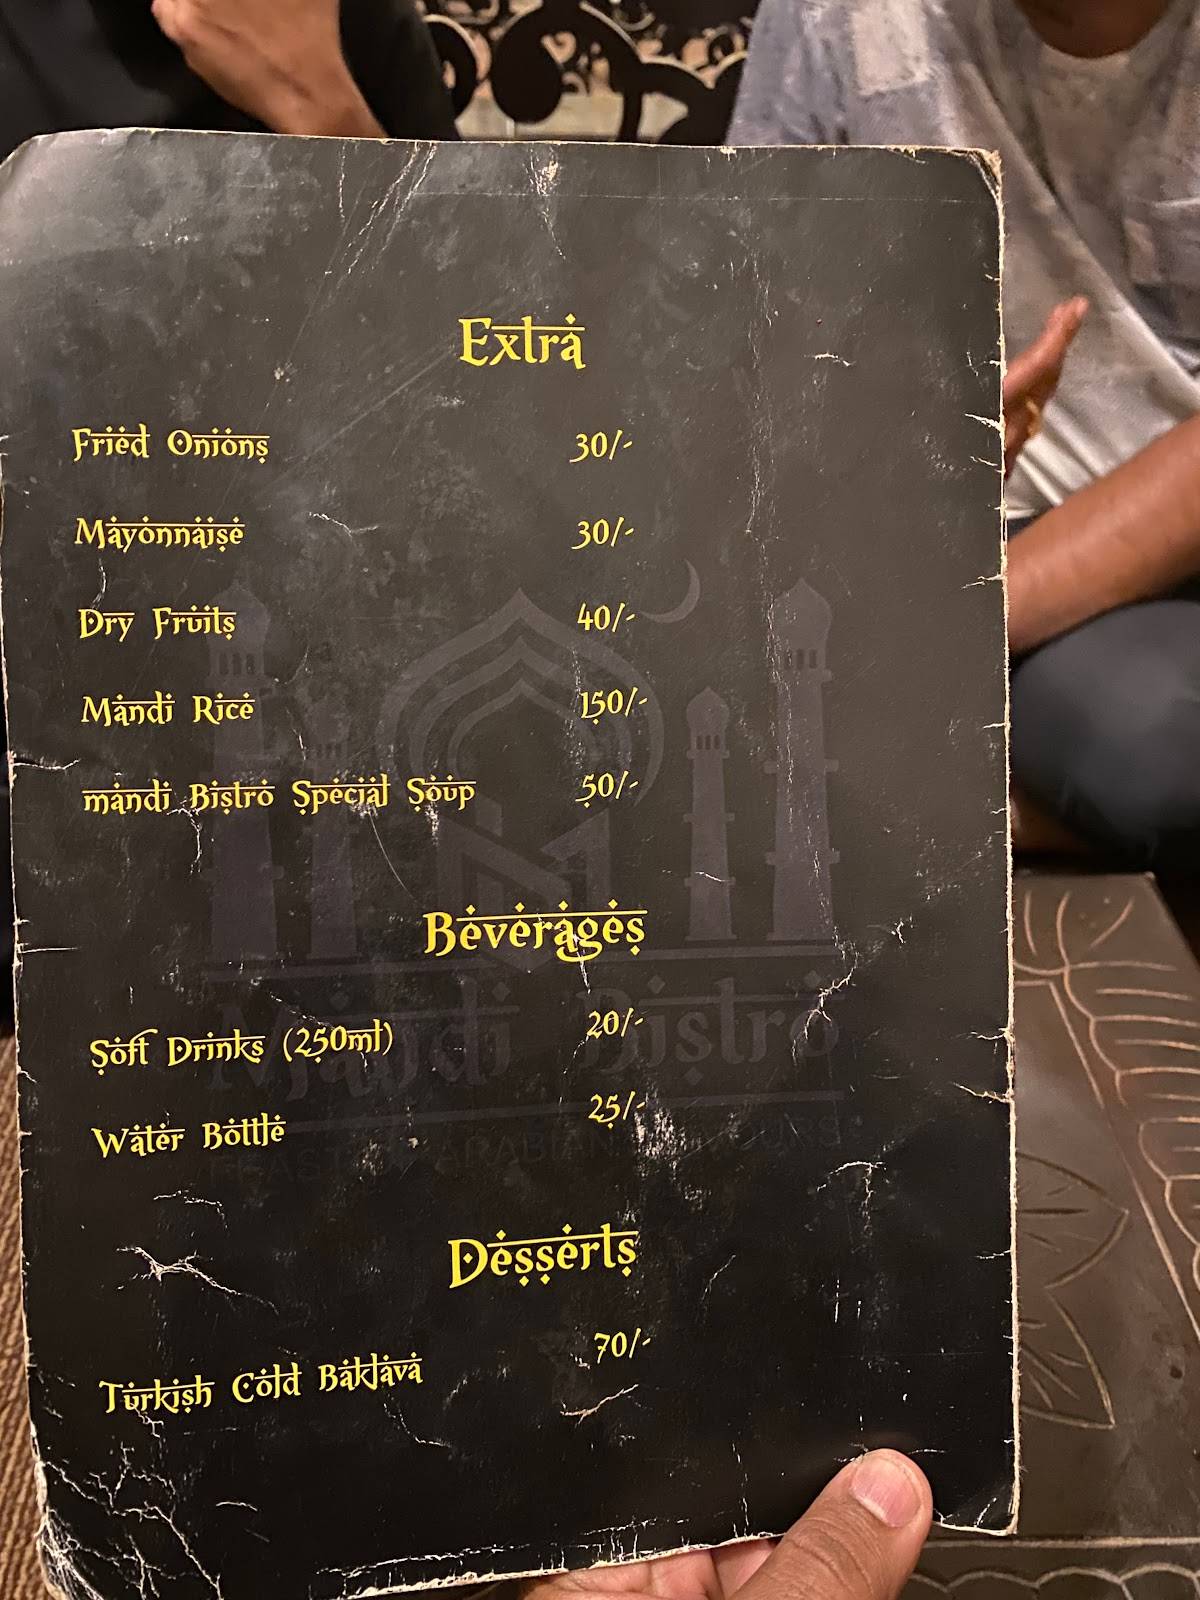 Extra
Fried Onions 30/-
Mayonnaise 30/-
Dry Fruits 40/-
Mandi Rice 150/-
mandi Bistro Special Soup 50/-
Beverages
Soft Drinks (250ml) 20/-
Mandi Bistro
Water Bottle 25/-
FEAST ARABIAN
Desserts
Turkish Cold Baklava 70/-